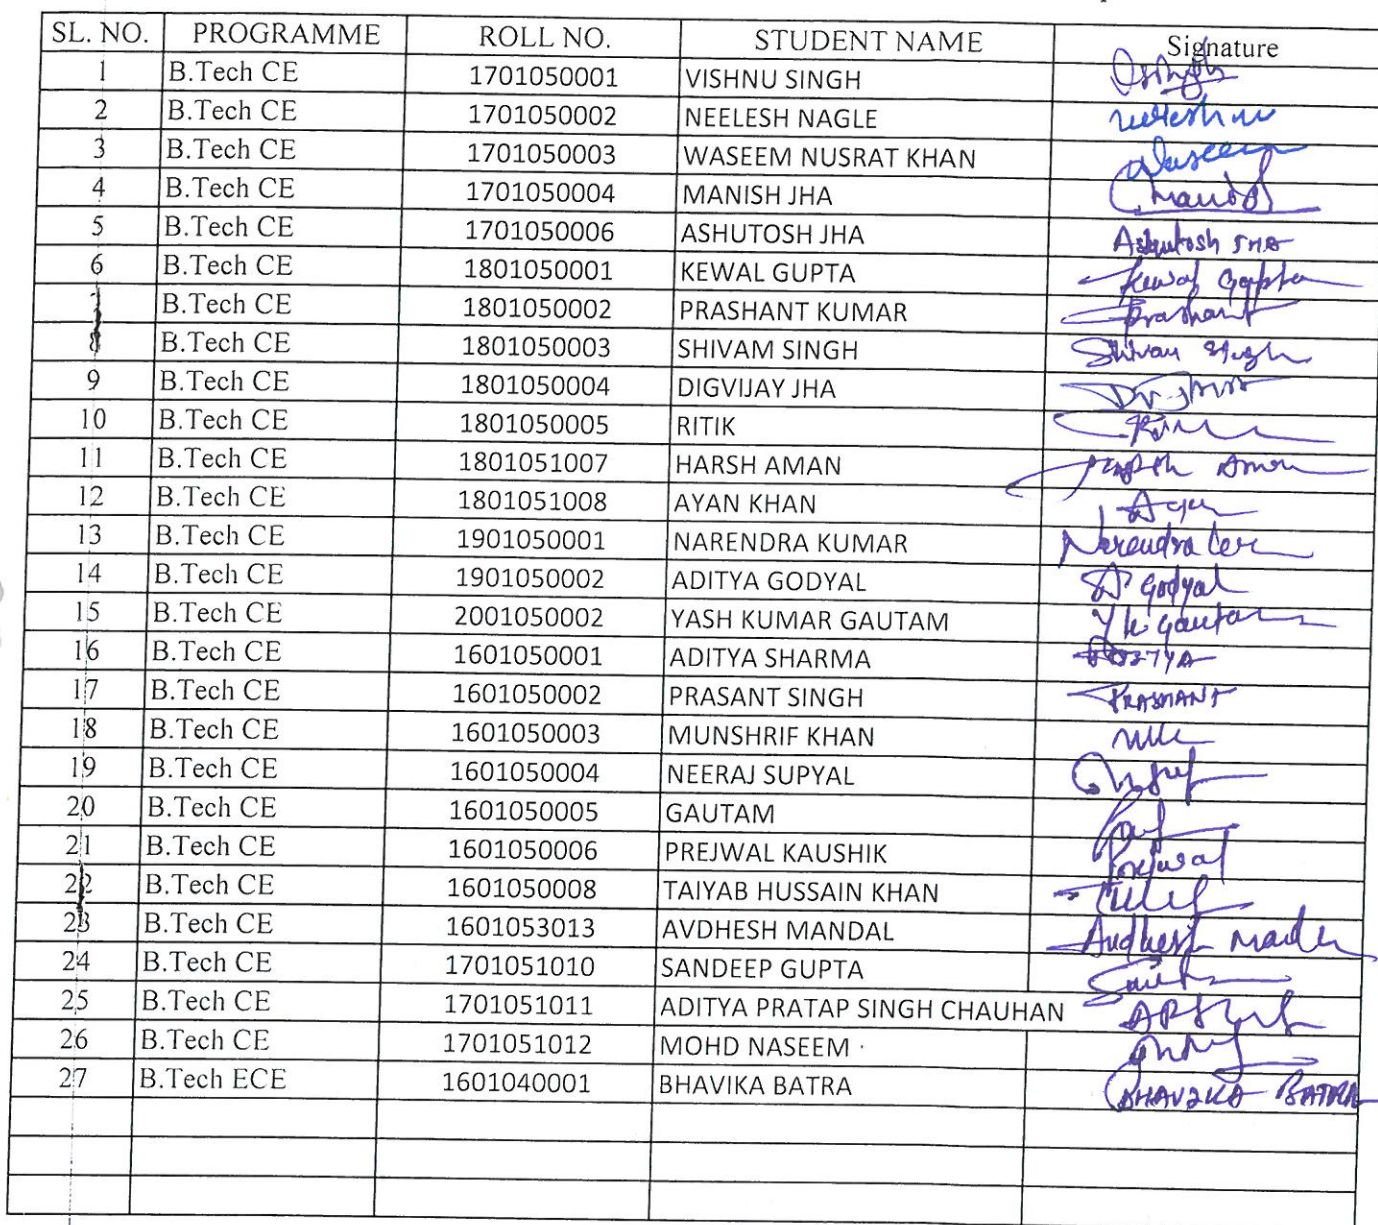 SL. NO. PROGRAMME ROLL NO. STUDENT NAME Signature
1 B.Tech CE 1701050001 VISHNU SINGH
2 B.Tech CE 1701050002 NEELESH NAGLE
3 B.Tech CE 1701050003 WASEEM NUSRAT KHAN Waseem
4 B.Tech CE 1701050004 MANISH JHA
5 B.Tech CE 1701050006 ASHUTOSH JHA Ashutosh JHA
6 B.Tech CE 1801050001 KEWAL GUPTA Kewal Gupta
7 B.Tech CE 1801050002 PRASHANT KUMAR Prashant
8 B.Tech CE 1801050003 SHIVAM SINGH Shivam Singh
9 B.Tech CE 1801050004 DIGVIJAY JHA
10 B.Tech CE 1801050005 RITIK
11 B.Tech CE 1801051007 HARSH AMAN
12 B.Tech CE 1801051008 AYAN KHAN
13 B.Tech CE 1901050001 NARENDRA KUMAR Narendra
14 B.Tech CE 1901050002 ADITYA GODYAL A Godyal
15 B.Tech CE 2001050002 YASH KUMAR GAUTAM Yk Gautam
16 B.Tech CE 1601050001 ADITYA SHARMA
17 B.Tech CE 1601050002 PRASANT SINGH PRASHANT
18 B.Tech CE 1601050003 MUNSHRIF KHAN
19 B.Tech CE 1601050004 NEERAJ SUPYAL
20 B.Tech CE 1601050005 GAUTAM
21 B.Tech CE 1601050006 PREJWAL KAUSHIK Prejwal
22 B.Tech CE 1601050008 TAIYAB HUSSAIN KHAN
23 B.Tech CE 1601053013 AVDHESH MANDAL Avdhesh
24 B.Tech CE 1701051010 SANDEEP GUPTA
25 B.Tech CE 1701051011 ADITYA PRATAP SINGH CHAUHAN
26 B.Tech CE 1701051012 MOHD NASEEM
27 B.Tech ECE 1601040001 BHAVIKA BATRA BHAVIKA BATRA